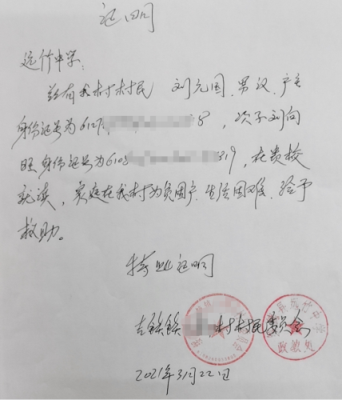 证明
远竹中学:
兹有我村村民 刘元国,男,汉,户主
身份证号为6127 8,次子刘向
旺身份证号为6105 319,在贵校
就读,家庭在我村为贫困户,生活困难,给予
救助。
特此证明
村村民委员会
2021年3月22日